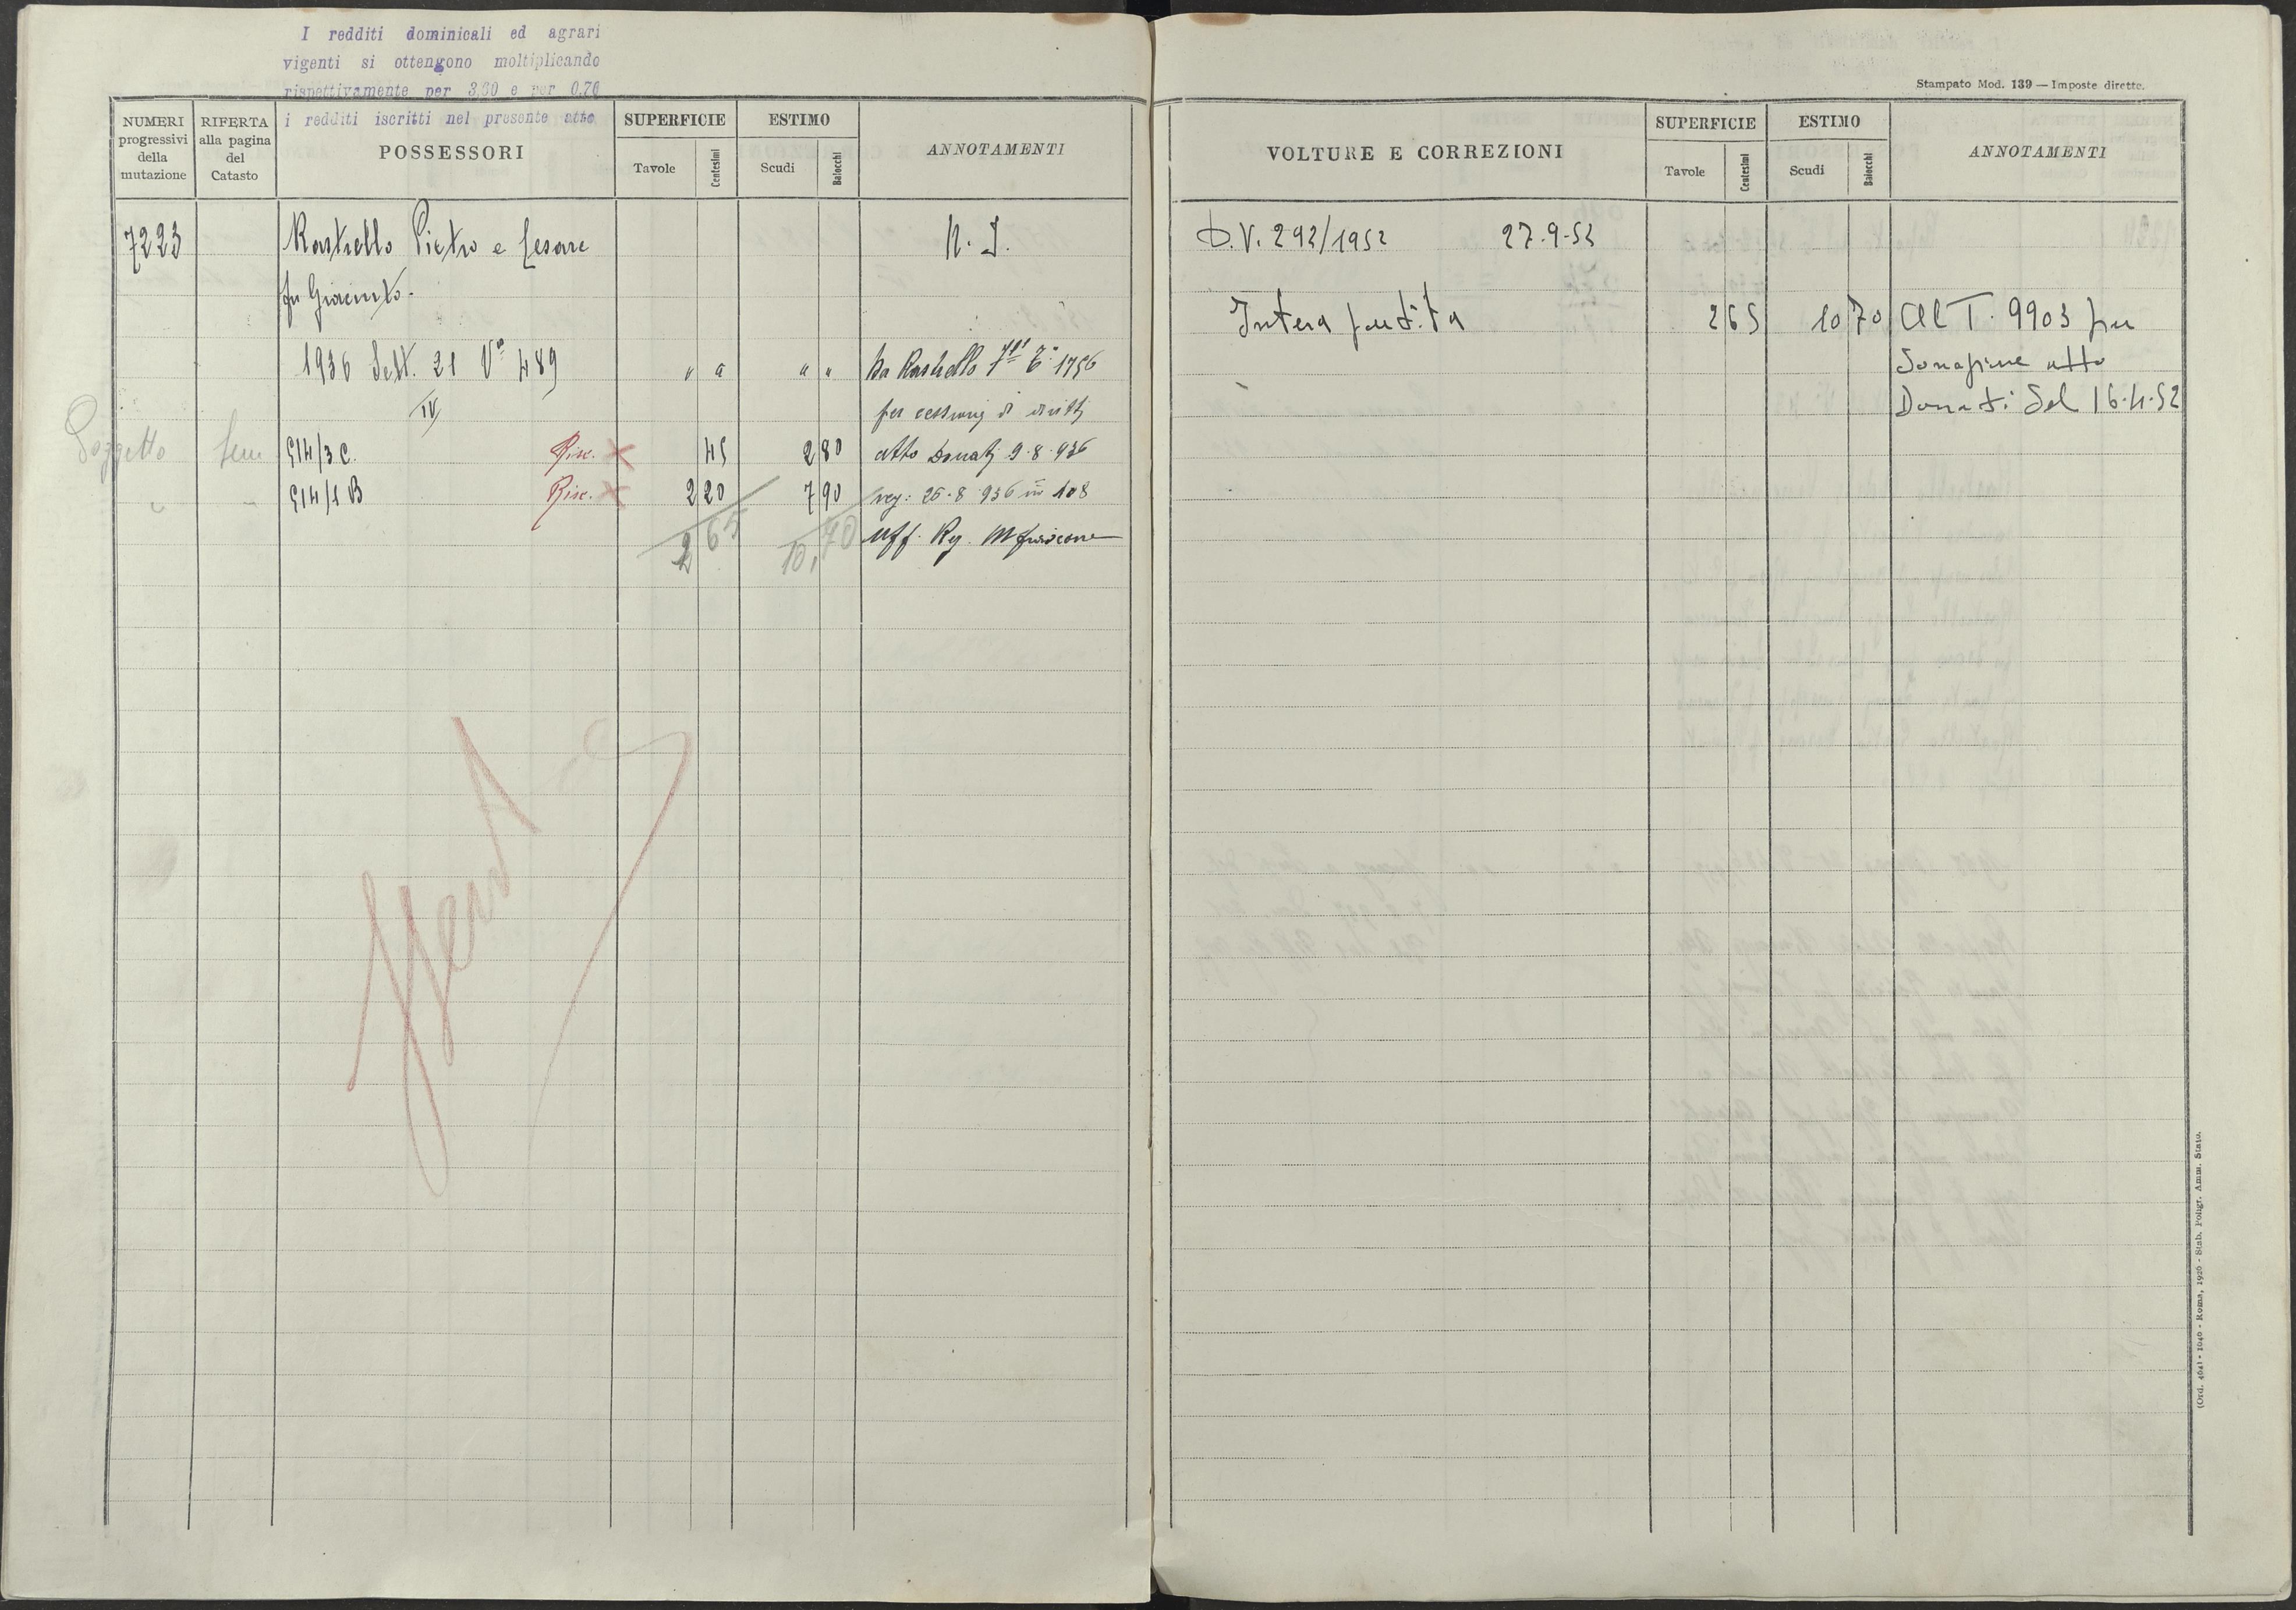 I redditi dominicali ed agrari
vigenti si ottengono moltiplicando
rispettivamente per 3,60 e per 0,70
i redditi iscritti nel presente atto
NUMERI progressivi della mutazione
RIFERTA alla pagina del Catasto
POSSESSORI
SUPERFICIE
Tavole
Centesimi
ESTIMO
Scudi
Baiocchi
ANNOTAMENTI
7223 Rastrello Pietro e Cesare N. I.
fu Giacinto.
1936 Sett. 21 Vª 489 " " " " Da Rastrello Tª 1756
IV per cessione di diritti
Poggetto Sem 514/3 C. Risc. X 45 2 80 atto Donati 9.8.936
" " 514/1 B Risc. X 2 20 7 90 reg: 26.8.936 in 108
2 65 10,70 Uff. Reg.
Stampato Mod. 139 — Imposte dirette.
VOLTURE E CORREZIONI
SUPERFICIE
Tavole
Centesimi
ESTIMO
Scudi
Baiocchi
ANNOTAMENTI
D.V. 292/1952 27.9.52
Intera partita 2 65 10 70 Al T. 9903 per
Donazione atto
Donati del 16.4.52
(Ord. 464) - 1040 - Roma, 1926 - Stab. Poligr. Amm. Stato.